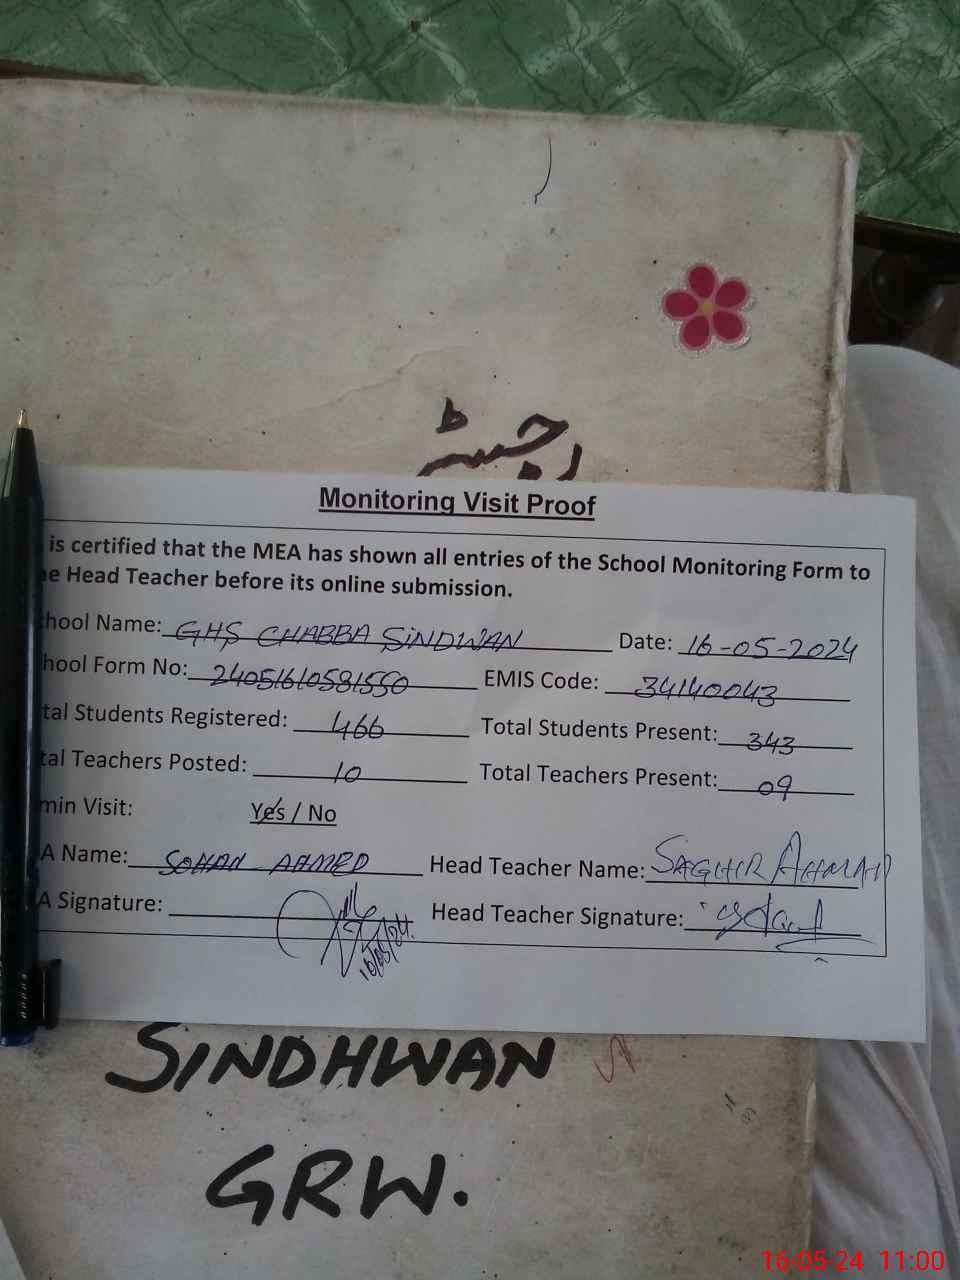 رجسٹر
Monitoring Visit Proof
is certified that the MEA has shown all entries of the School Monitoring Form to
e Head Teacher before its online submission.
hool Name: GHS CHABBA SINDWAN Date: 16-05-2024
hool Form No: 24051610581550 EMIS Code: 34140043
tal Students Registered: 466 Total Students Present: 343
tal Teachers Posted: 10 Total Teachers Present: 09
min Visit: Yes / No
A Name: SOHAN AHMED Head Teacher Name: SAGHIR AHMAD
A Signature: 16/05/24 Head Teacher Signature:
SINDHWAN
GRW.
16-05-24 11:00